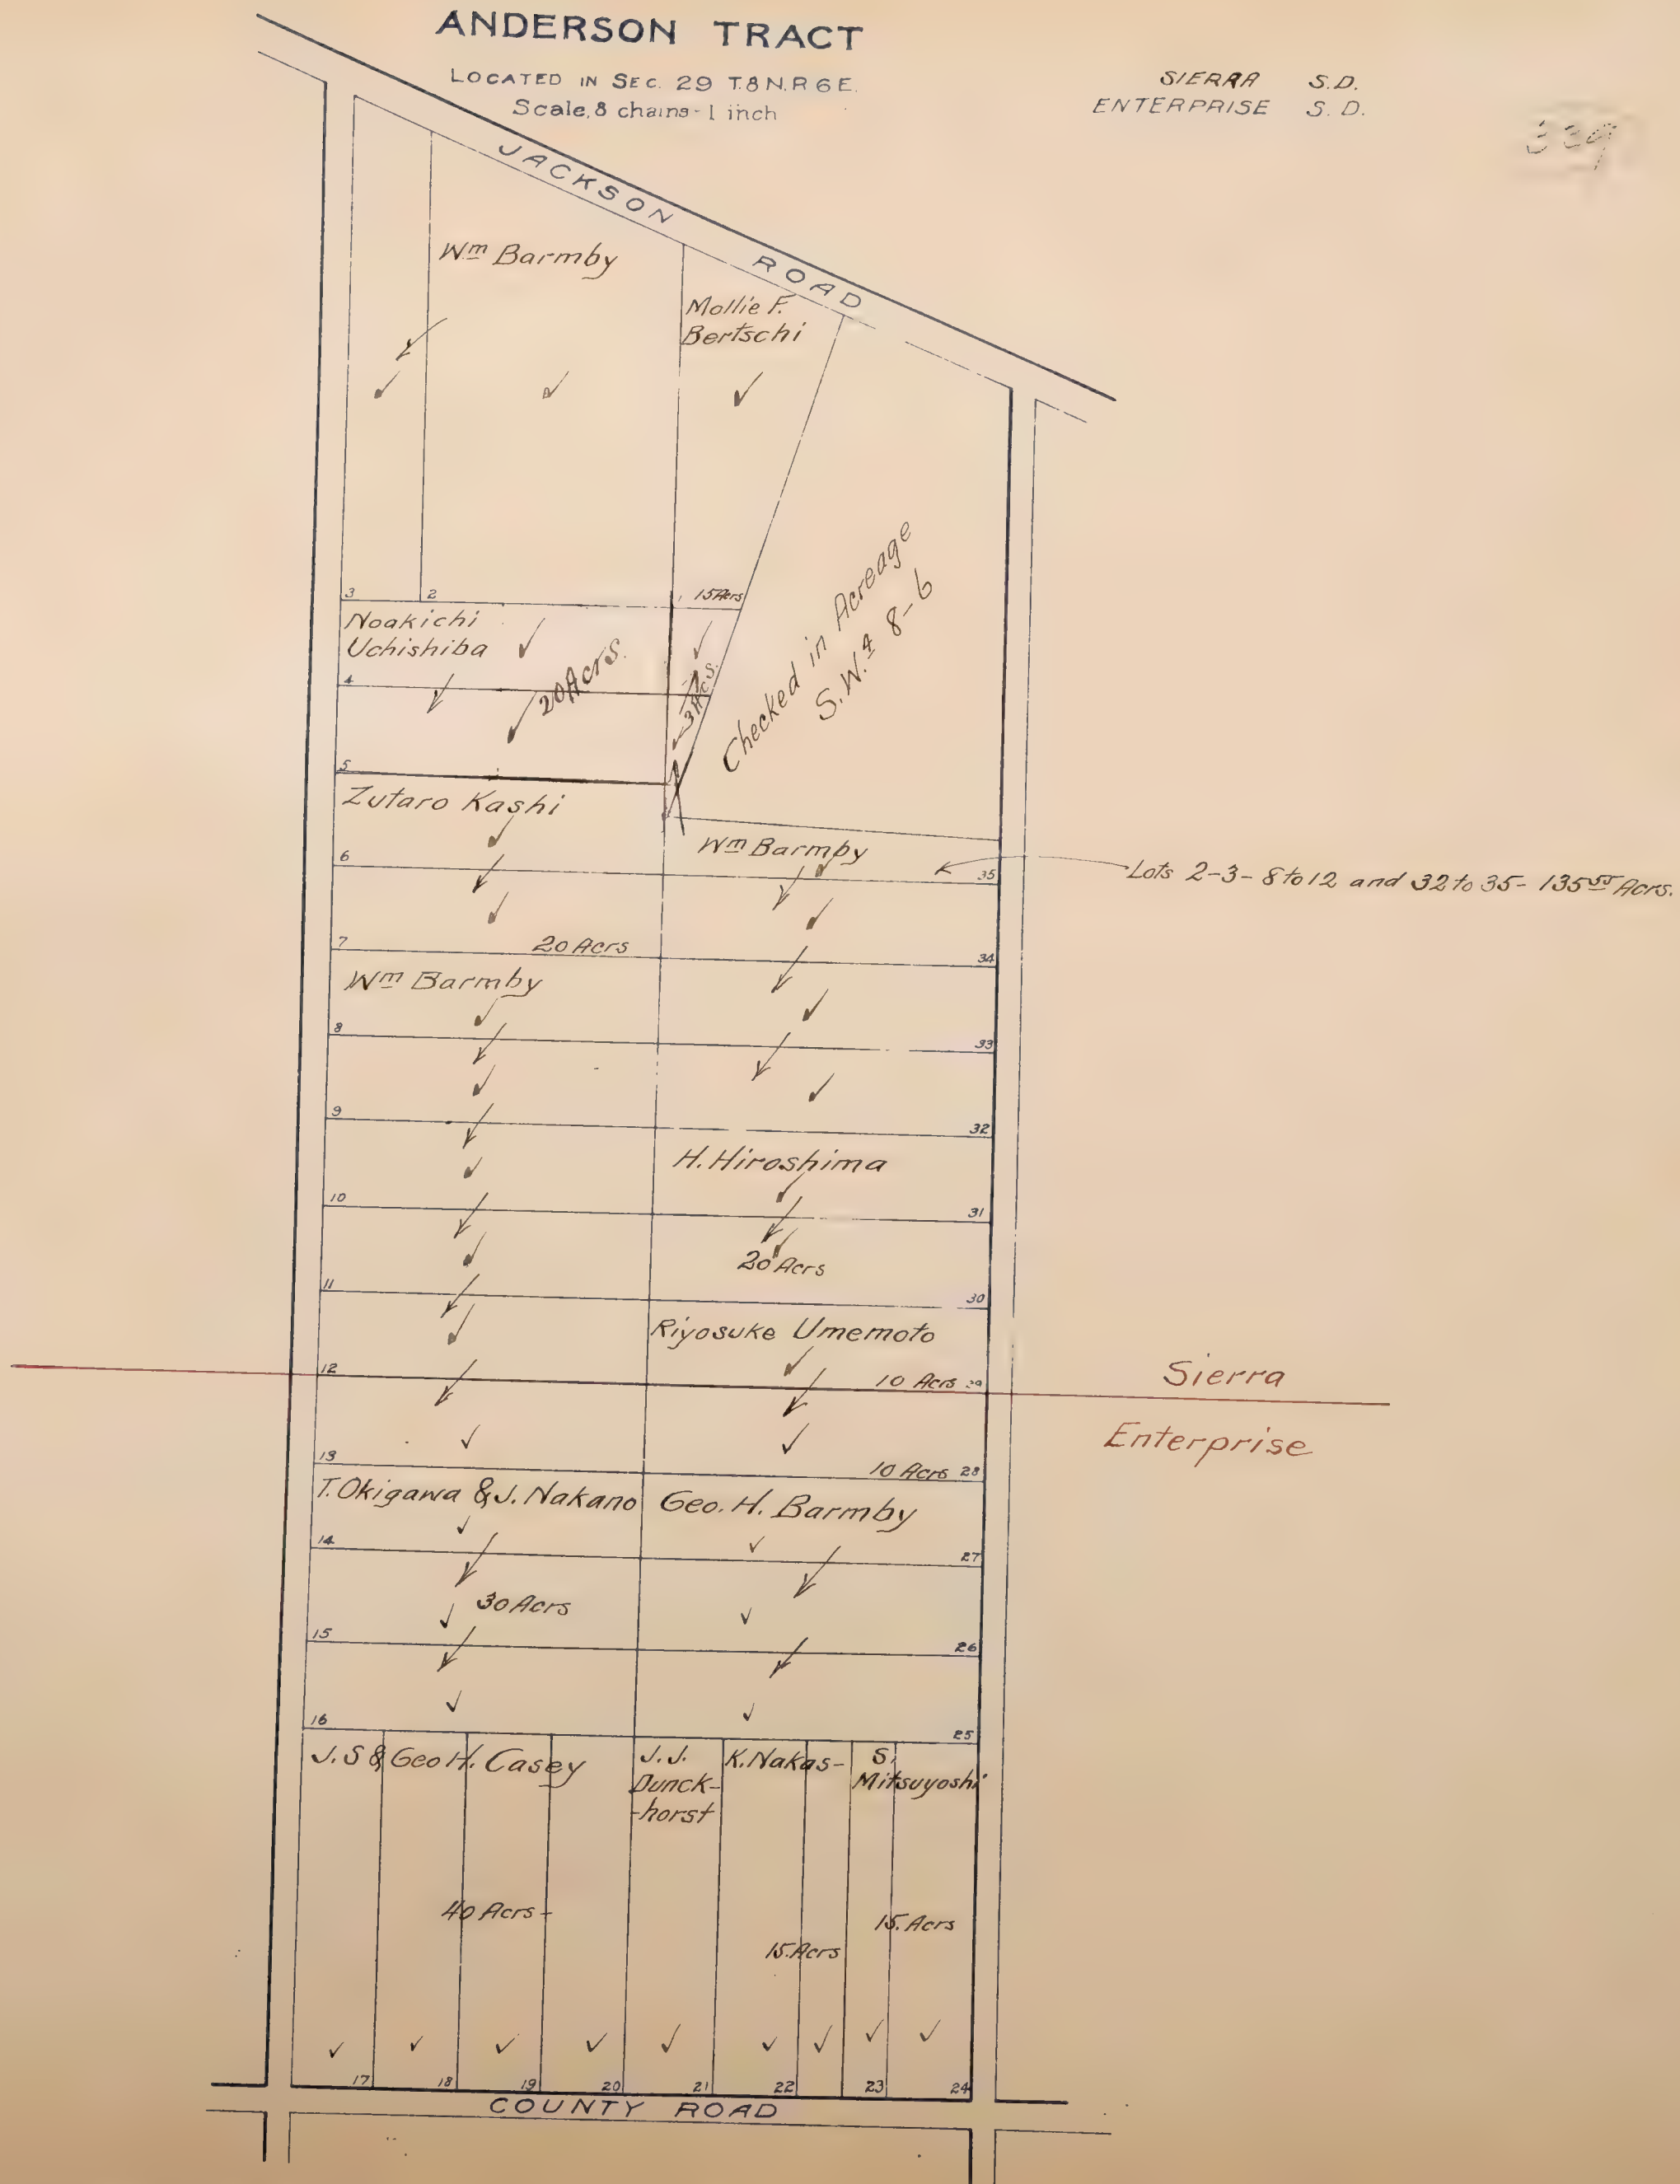 ANDERSON TRACT
LOCATED IN SEC. 29 T.8N.R6E.
Scale, 8 chains - 1 inch
SIERRA S.D.
ENTERPRISE S.D.
339
JACKSON ROAD
Wm Barmby
Mollie F.
Bertschi
3
2
1
15 Acrs
Noakichi
Uchishiba
20 Acrs.
3 Acs.
Checked in Acreage
S.W.4 8-6
4
5
Zutaro Kashi
Wm Barmby
6
35
Lots 2-3-8 to 12 and 32 to 35- 135 55 Acrs.
7
20 Acrs
34
Wm Barmby
8
33
9
32
H. Hiroshima
10
31
20 Acrs
11
30
Riyosuke Umemoto
12
10 Acrs 29
Sierra
Enterprise
13
10 Acrs 28
T. Okigawa & J. Nakano
Geo. H. Barmby
14
27
30 Acrs
15
26
16
25
J.S & Geo H. Casey
J.J.
Dunck-
-horst
K. Nakas-
S.
Mitsuyoshi
40 Acrs-
15. Acrs
15. Acrs
17 18 19 20 21 22 23 24
COUNTY ROAD